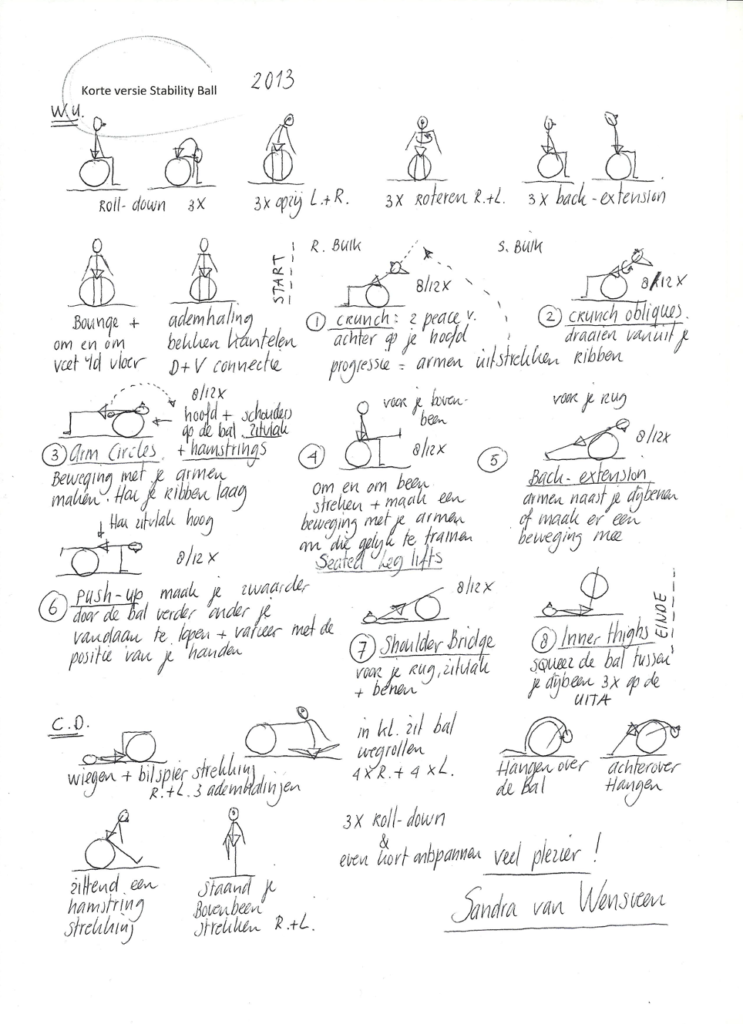 Korte versie Stability Ball
2013
W.U.
Roll-down 3X
3X opzij L.+R.
3X Roteren R.+L.
3X back-extension
Bounge +
om en om
voet v/d vloer
ademhaling
bekken kantelen
D+V connectie
START
R. Buik
8/12X
① CRUNCH = 2 peace v.
achter op je hoofd
progressie = armen uitstrekken
S. Buik
8/12X
② CRUNCH obliques.
draaien vanuit je
Ribben
8/12X
hoofd + schouders
op de bal. zitvlak
+ hamstrings
③ Arm Circles
Beweging met je armen
maken. Hou je Ribben laag
voor je boven-
been
8/12X
④ om en om been
strekken + maak een
beweging met je armen
om die gelijk te trainen
Seated Leg lifts
voor je Rug
8/12X
⑤ Back-extension
armen naast je dijbenen
of maak er een
beweging mee
Hou zitvlak hoog
8/12X
⑥ push-up maak je zwaarder
door de bal verder onder je
vandaan te lopen + varieer met de
positie van je handen
8/12X
⑦ Shoulder Bridge
voor je Rug, zitvlak
+ benen
⑧ Inner Thighs
squeez de bal tussen
je dijbeen 3X op de
UITA
EINDE
C.D.
wiegen + bilspier strekking
R.+L. 3 ademhalinjen
in kl. zit bal
wegrollen
4XR.+ 4XL.
Hangen over
de Bal
achterover
Hangen
zittend een
hamstring
strekking
staand je
Bovenbeen
strekken R.+L.
3X Roll-down
&
even kort ontspannen
veel plezier!
Sandra van Wensveen